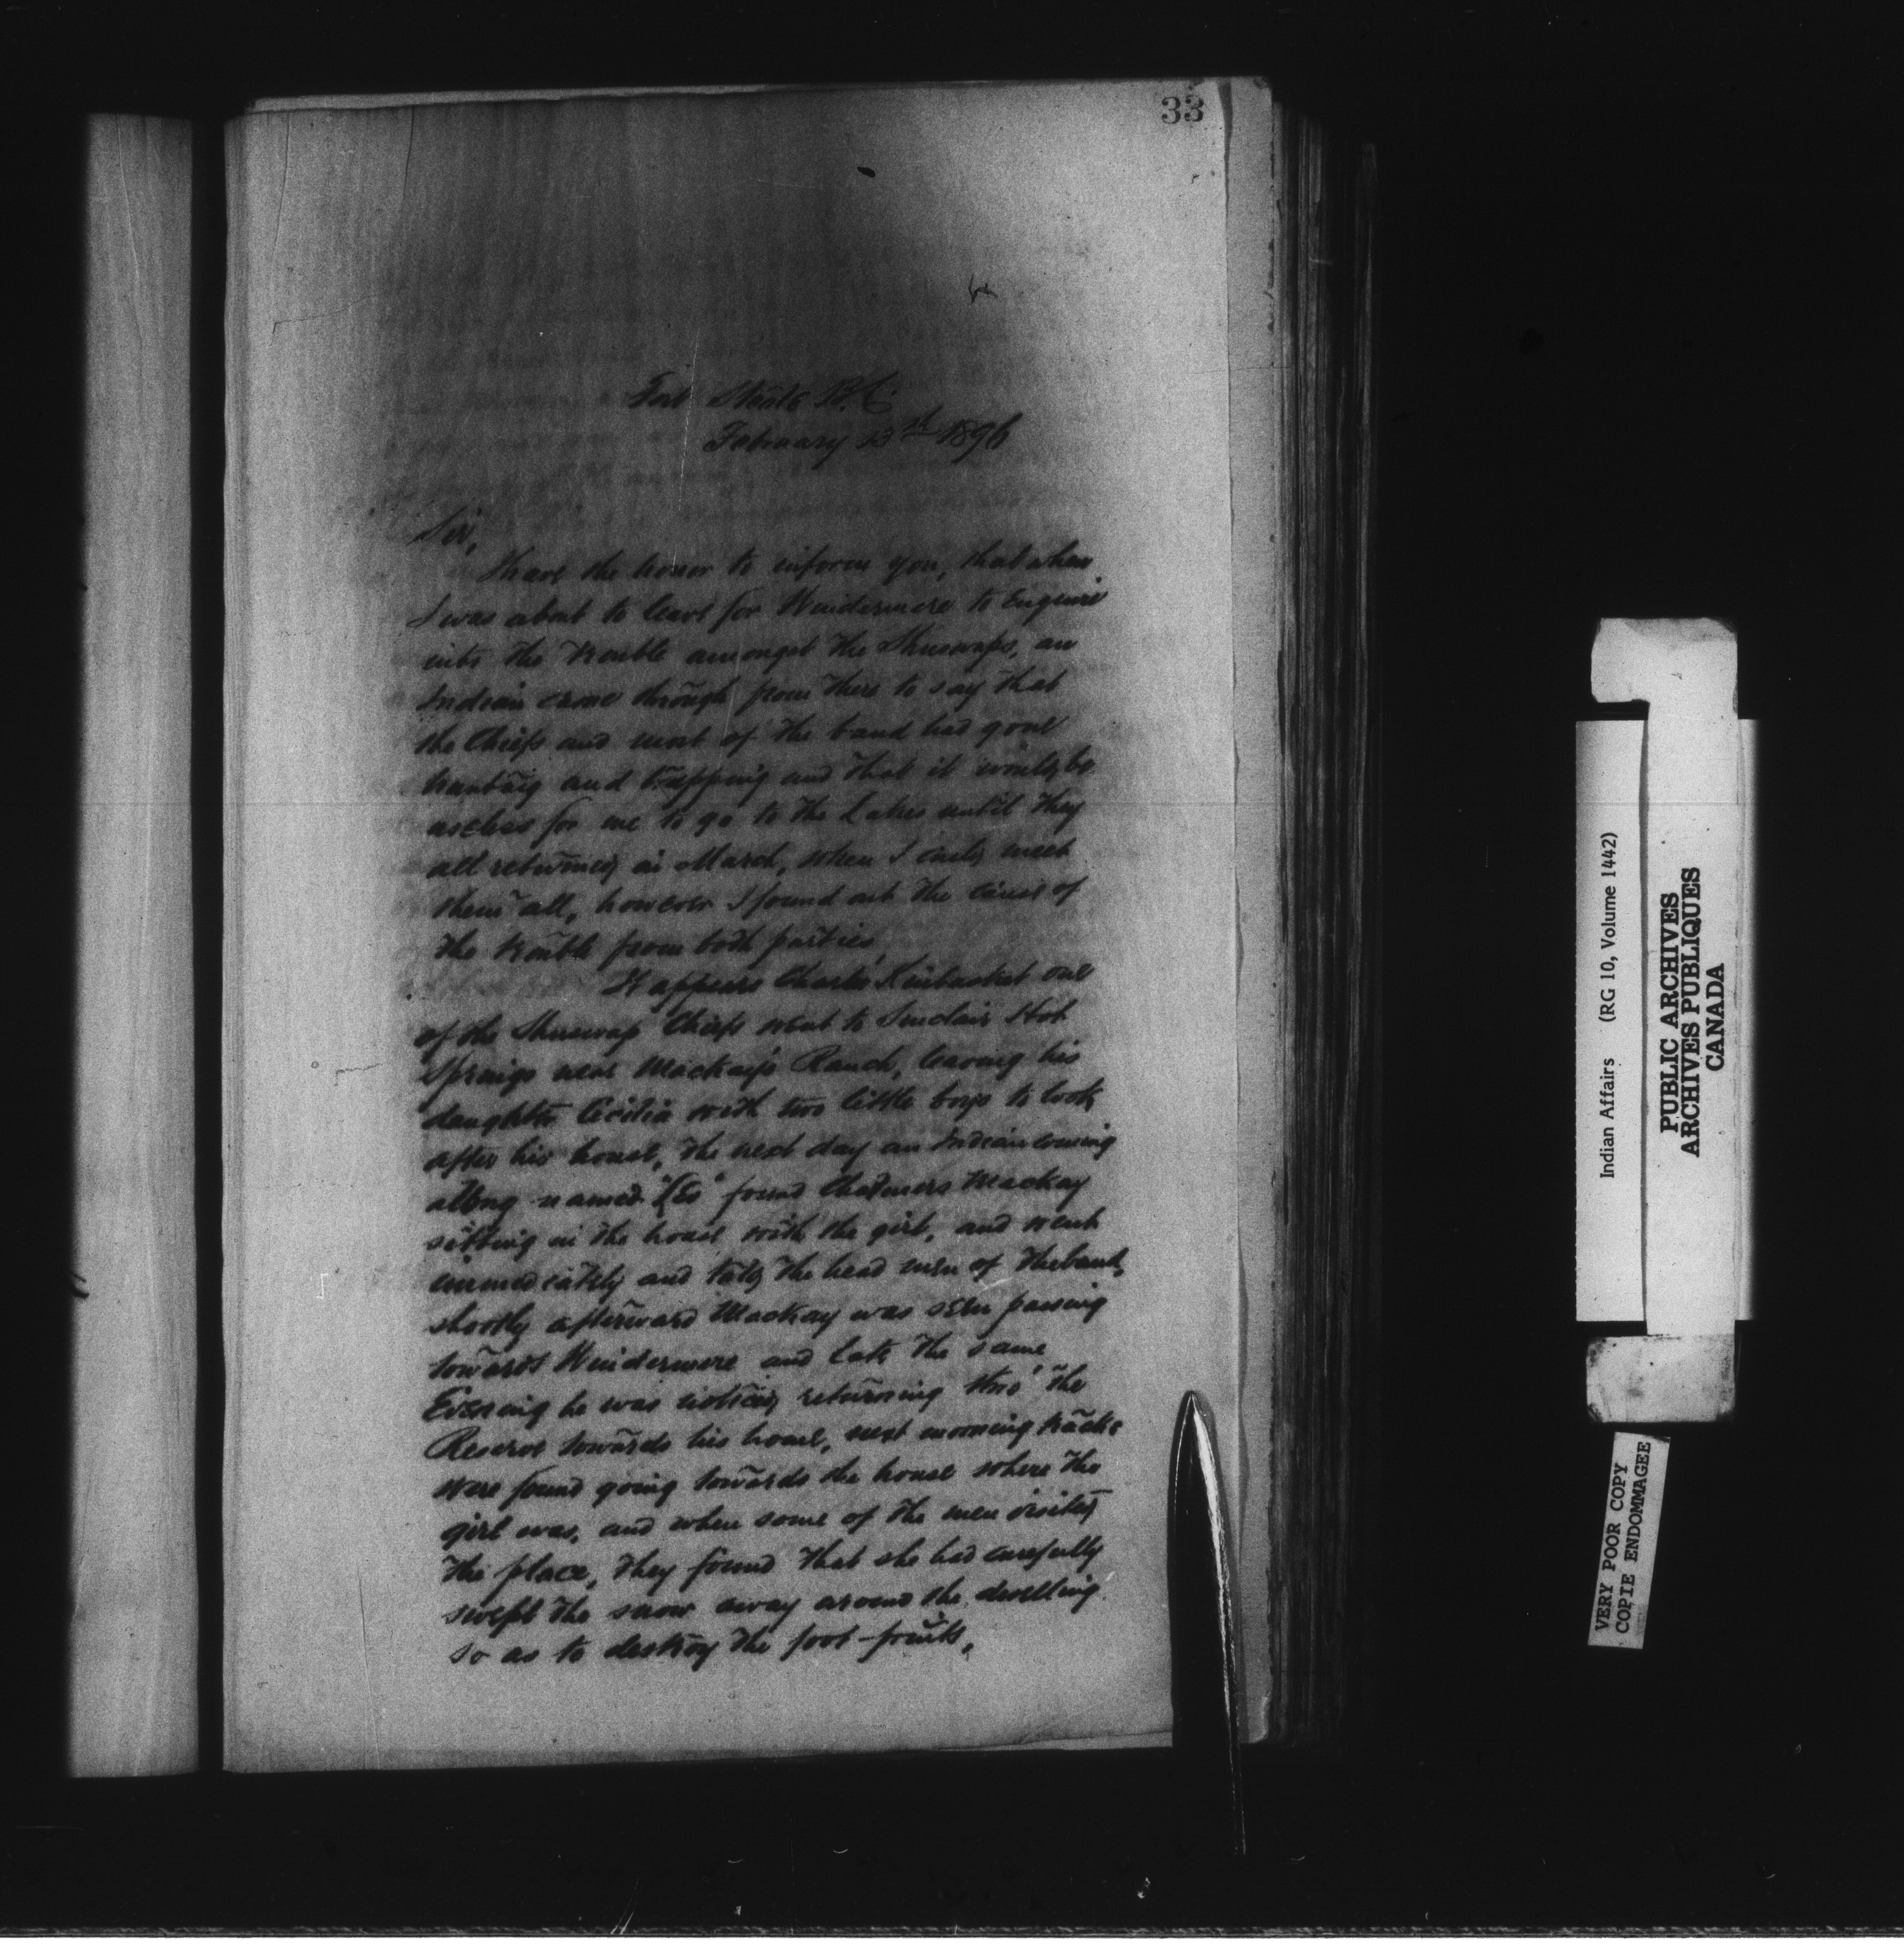 33
Fort Steele B.C.
February 13th 1896
Sir,
I have the honor to inform you, that when
I was about to leave for Windermere to Enquire
into the trouble amongst the Shuswaps, an
Indian came through from there to say that
the Chiefs and most of the band had gone
hunting and trapping and that it would be
useless for me to go to the Lakes until they
all returned in March, when I could meet
them all, however I found out the cause of
the trouble from both parties
It appears Charles Kinbasket one
of the Shuswap Chiefs went to Sinclair Hot
Springs near Mackay's Ranch, leaving his
daughter Cecilia with two little boys to look
after his house, the next day an Indian coming
along named found Chalmers Mackay
sitting in the house with the girl, and went
immediately and told the head men of the band,
shortly afterward Mackay was seen passing
towards Windermere and late the same
Evening he was noticed returning thro' the
Reserve towards his home, next morning tracks
were found going towards the house where the
girl was, and when some of the men visited
the place, they found that she had carefully
swept the snow away around the dwelling
so as to destroy the foot-prints.
Indian Affairs (RG 10, Volume 1442)
PUBLIC ARCHIVES
ARCHIVES PUBLIQUES
CANADA
VERY POOR COPY
COPIE ENDOMMAGEE